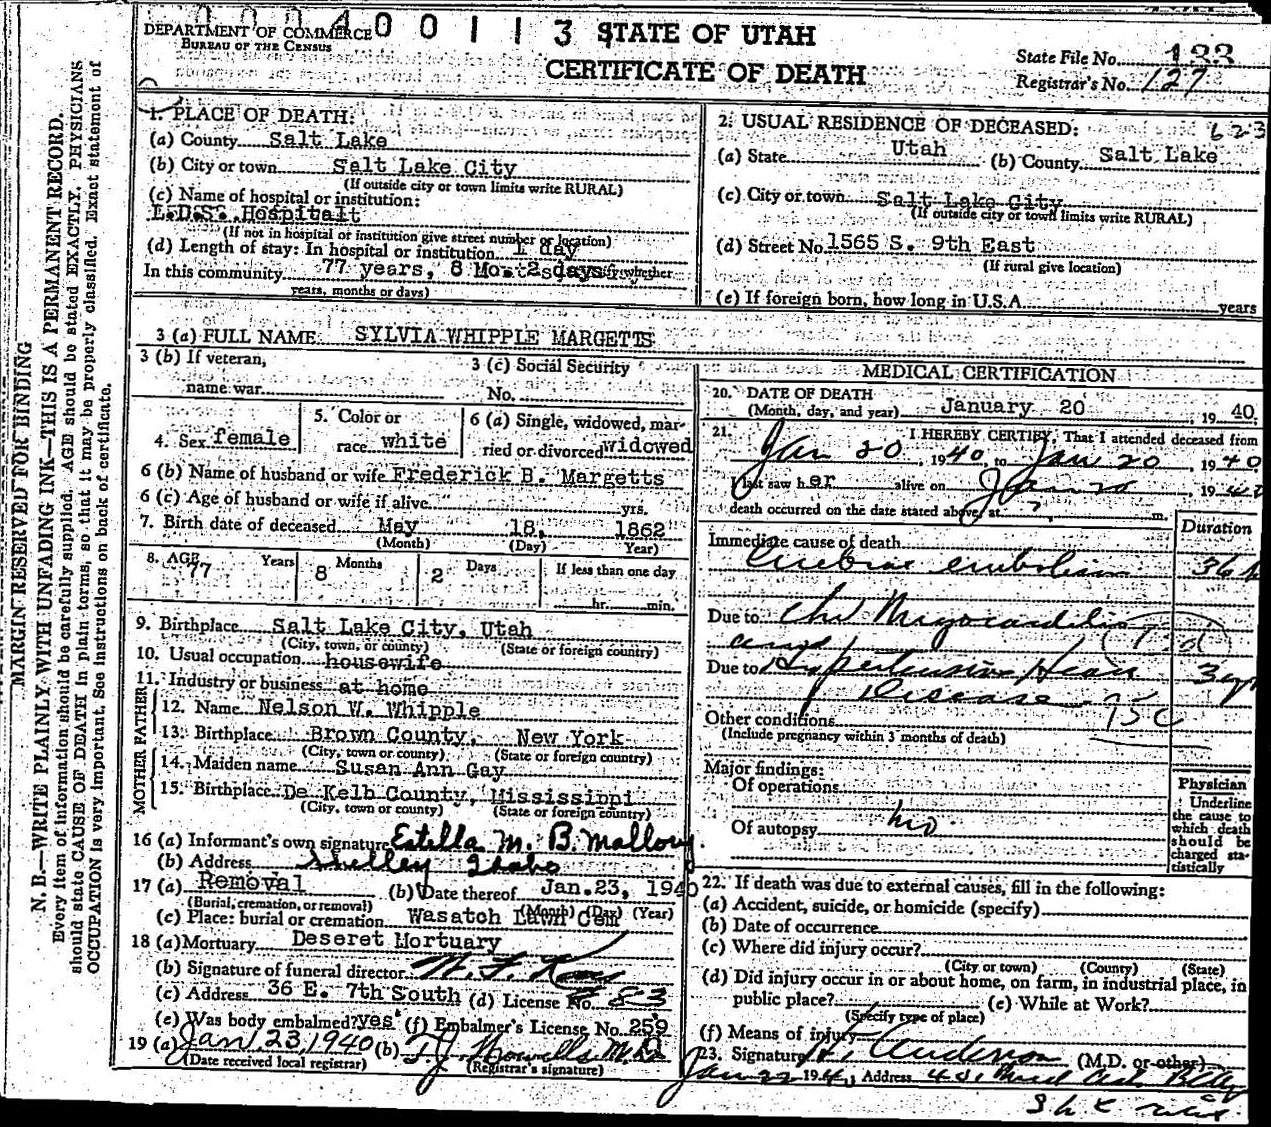 000400113
DEPARTMENT OF COMMERCE
BUREAU OF THE CENSUS
STATE OF UTAH
CERTIFICATE OF DEATH
State File No. 133
Registrar's No. 127
MARGIN RESERVED FOR BINDING
N. B.—WRITE PLAINLY WITH UNFADING INK—THIS IS A PERMANENT RECORD.
Every item of information should be carefully supplied. AGE should be stated EXACTLY. PHYSICIANS
should state CAUSE OF DEATH in plain terms, so that it may be properly classified. Exact statement of
OCCUPATION is very important. See instructions on back of certificate.
1. PLACE OF DEATH:
(a) County Salt Lake
(b) City or town Salt Lake City
(If outside city or town limits write RURAL)
(c) Name of hospital or institution:
L.D.S. Hospitalt
(If not in hospital or institution give street number or location)
(d) Length of stay: In hospital or institution 1 day
In this community 77 years, 8 Mo. 2 days
years, months or days)
2. USUAL RESIDENCE OF DECEASED: 623
(a) State Utah (b) County Salt Lake
(c) City or town Salt Lake City
(If outside city or town limits write RURAL)
(d) Street No. 1565 S. 9th East
(If rural give location)
(e) If foreign born, how long in U.S.A. years
3 (a) FULL NAME SYLVIA WHIPPLE MARGETTS
3 (b) If veteran,
name war
3 (c) Social Security
No.
4. Sex female
5. Color or
race white
6 (a) Single, widowed, mar-
ried or divorced Widowed
6 (b) Name of husband or wife Frederick B. Margetts
6 (c) Age of husband or wife if alive " yrs.
7. Birth date of deceased May 18, 1862
(Month) (Day) Year)
8. AGE 77 Years 8 Months 2 Days If less than one day
hr. min.
9. Birthplace Salt Lake City, Utah
(City, town, or county) (State or foreign country)
10. Usual occupation housewife
11. Industry or business at home
FATHER
12. Name Nelson W. Whipple
13. Birthplace Brown County, New York
(City, town or county) (State or foreign country)
MOTHER
14. Maiden name Susan Ann Gay
15. Birthplace De Kelb County, Mississippi
(City, town or county) (State or foreign country)
16 (a) Informant's own signature Estella M. B. Mallory.
(b) Address Shelley Idaho
17 (a) Removal (b) Date thereof Jan. 23, 1940
(Burial, cremation, or removal) (Month) (Day) (Year)
(c) Place: burial or cremation Wasatch Lawn Cem
18 (a) Mortuary Deseret Mortuary
(b) Signature of funeral director
(c) Address 36 E. 7th South (d) License No. 83
(e) Was body embalmed? yes (f) Embalmer's License No. 259
19 (a) Jan 23, 1940 (b) T. J. Howells M.D.
(Date received local registrar) (Registrar's signature)
MEDICAL CERTIFICATION
20. DATE OF DEATH
(Month, day, and year) January 20, 1940
21. I HEREBY CERTIFY, That I attended deceased from
Jan 20, 1940 to Jan 20, 1940
I last saw her alive on Jan 20, 1940
death occurred on the date stated above, at ? m.
Duration
Immediate cause of death
Cerebral embolism 36 h
Due to Chr Myocarditis
and
Due to Hypertensive Heart 3 yr
Disease
Other conditions
(Include pregnancy within 3 months of death)
Major findings:
Of operations
Of autopsy no
Physician
Underline
the cause to
which death
should be
charged sta-
tistically
22. If death was due to external causes, fill in the following:
(a) Accident, suicide, or homicide (specify)
(b) Date of occurrence
(c) Where did injury occur?
(City or town) (County) (State)
(d) Did injury occur in or about home, on farm, in industrial place, in
public place? (e) While at Work?
(Specify type of place)
(f) Means of injury
23. Signature Anderson (M.D. or other)
Jan 22 194 Address